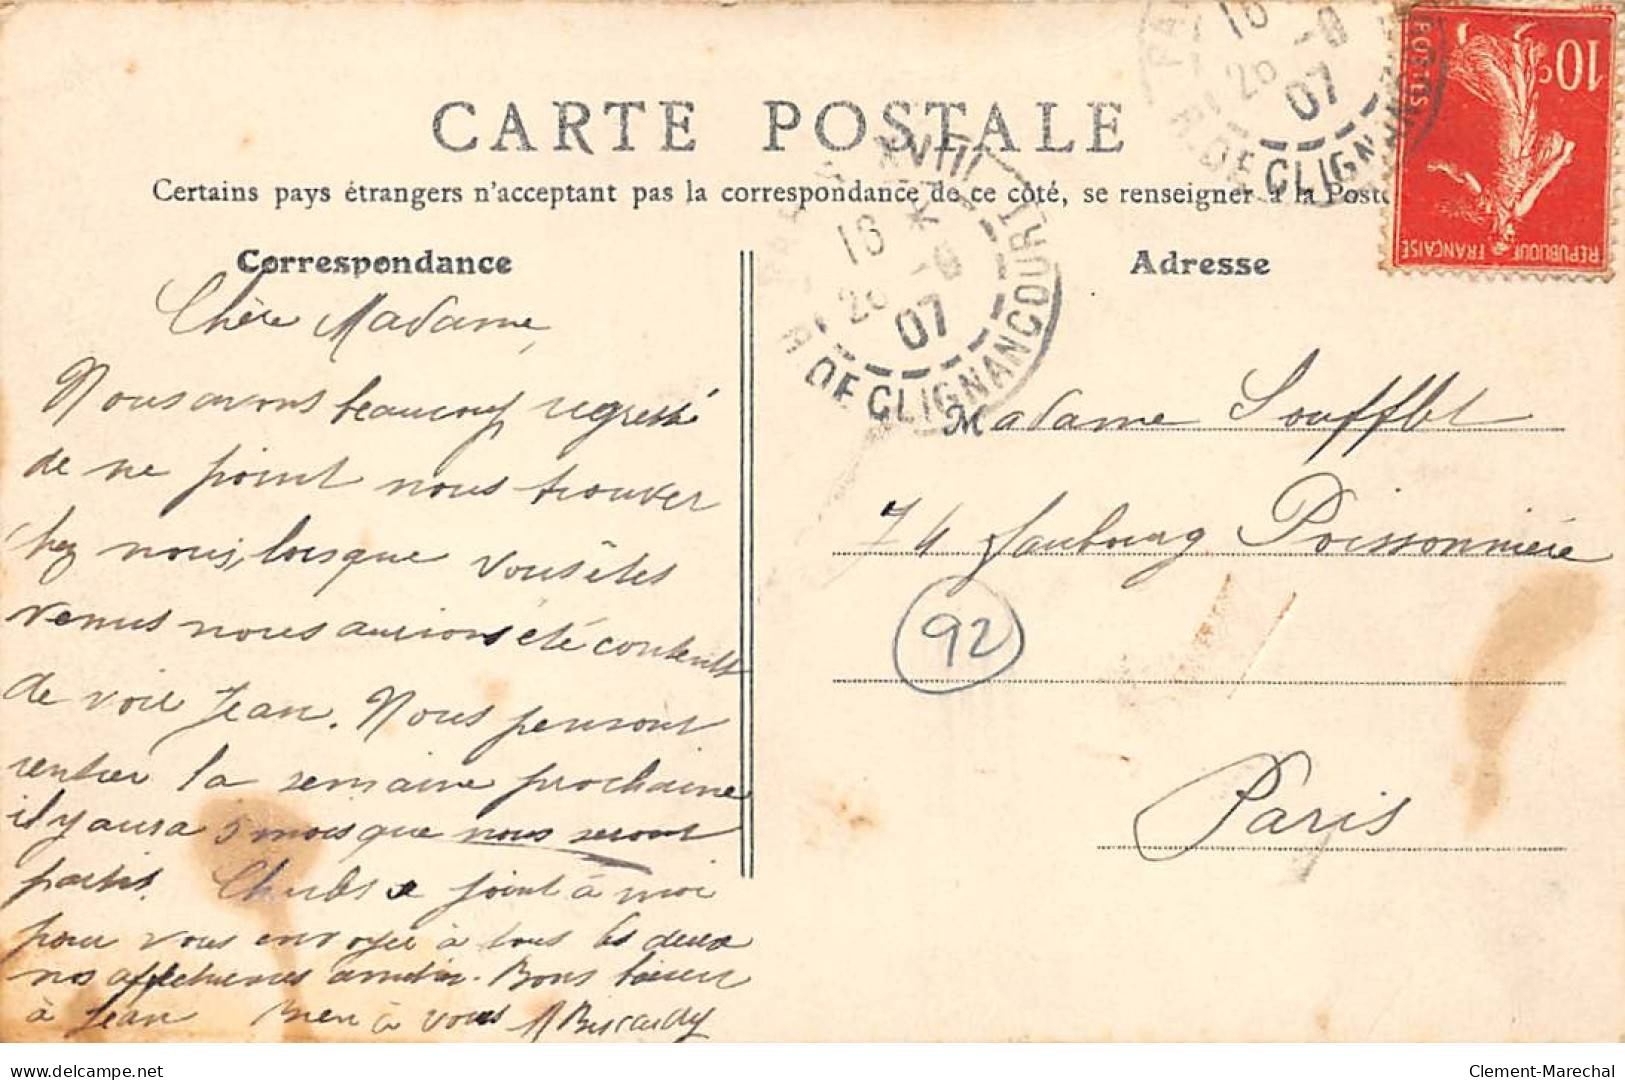 CARTE POSTALE
Certains pays étrangers n'acceptent pas la correspondance de ce côté, se renseigner à la Poste
Correspondance
Chère Madame,
Nous avons beaucoup regretté
de ne point nous trouver
chez nous, lorsque vous êtes
venus nous aurions été contents
de voir Jean. Nous pensons
rentrer la semaine prochaine
il y aura 5 mois que nous serons
partis. Charles se joint à moi
pour vous envoyer à tous les deux
nos affectueuses amitiés. Bons baisers
à Jean Bien à vous
Adresse
Madame Soufflet
74 faubourg Poissonnière
92
Paris
XVIII
16
26 -8
07
R. DE CLIGNANCOURT
16
26 -8
07
R. DE CLIGNANCOURT
10c
POSTES
REPUBLIQUE FRANÇAISE
Delcampe.net
Clement-Marechal